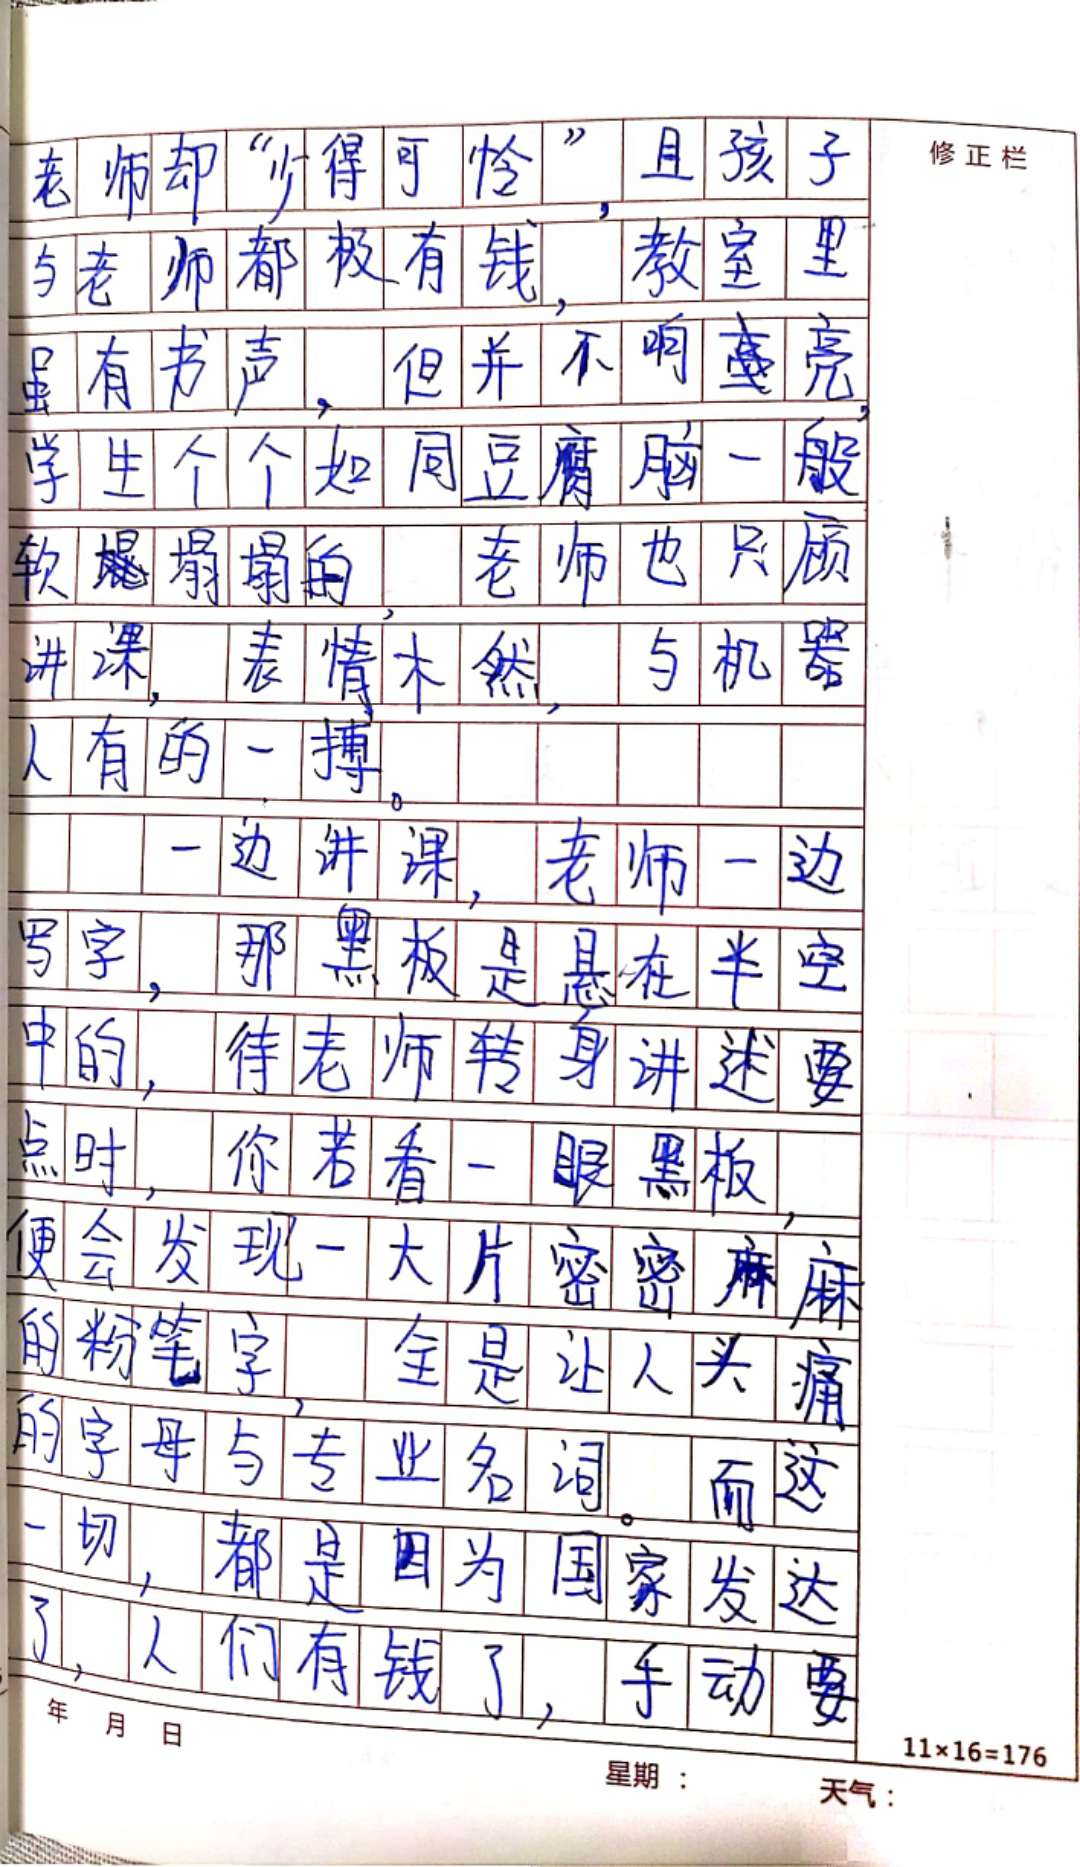 修正栏
老师却“少得可怜”,且孩子
与老师都极有钱,教室里
虽有书声,但并不响亮,
学生个个如同豆腐脑一般
软塌塌的,老师也只顾
讲课,表情木然,与机器
人有的一搏。
一边讲课,老师一边
写字,那黑板是悬在半空
中的,待老师转身讲述要
点时,你若看一眼黑板,
便会发现一大片密密麻麻
的粉笔字,全是让人头痛
的字母与专业名词。而这
一切,都是因为国家发达
了,人们有钱了,手动要
11×16=176
年 月 日
星期: 天气: